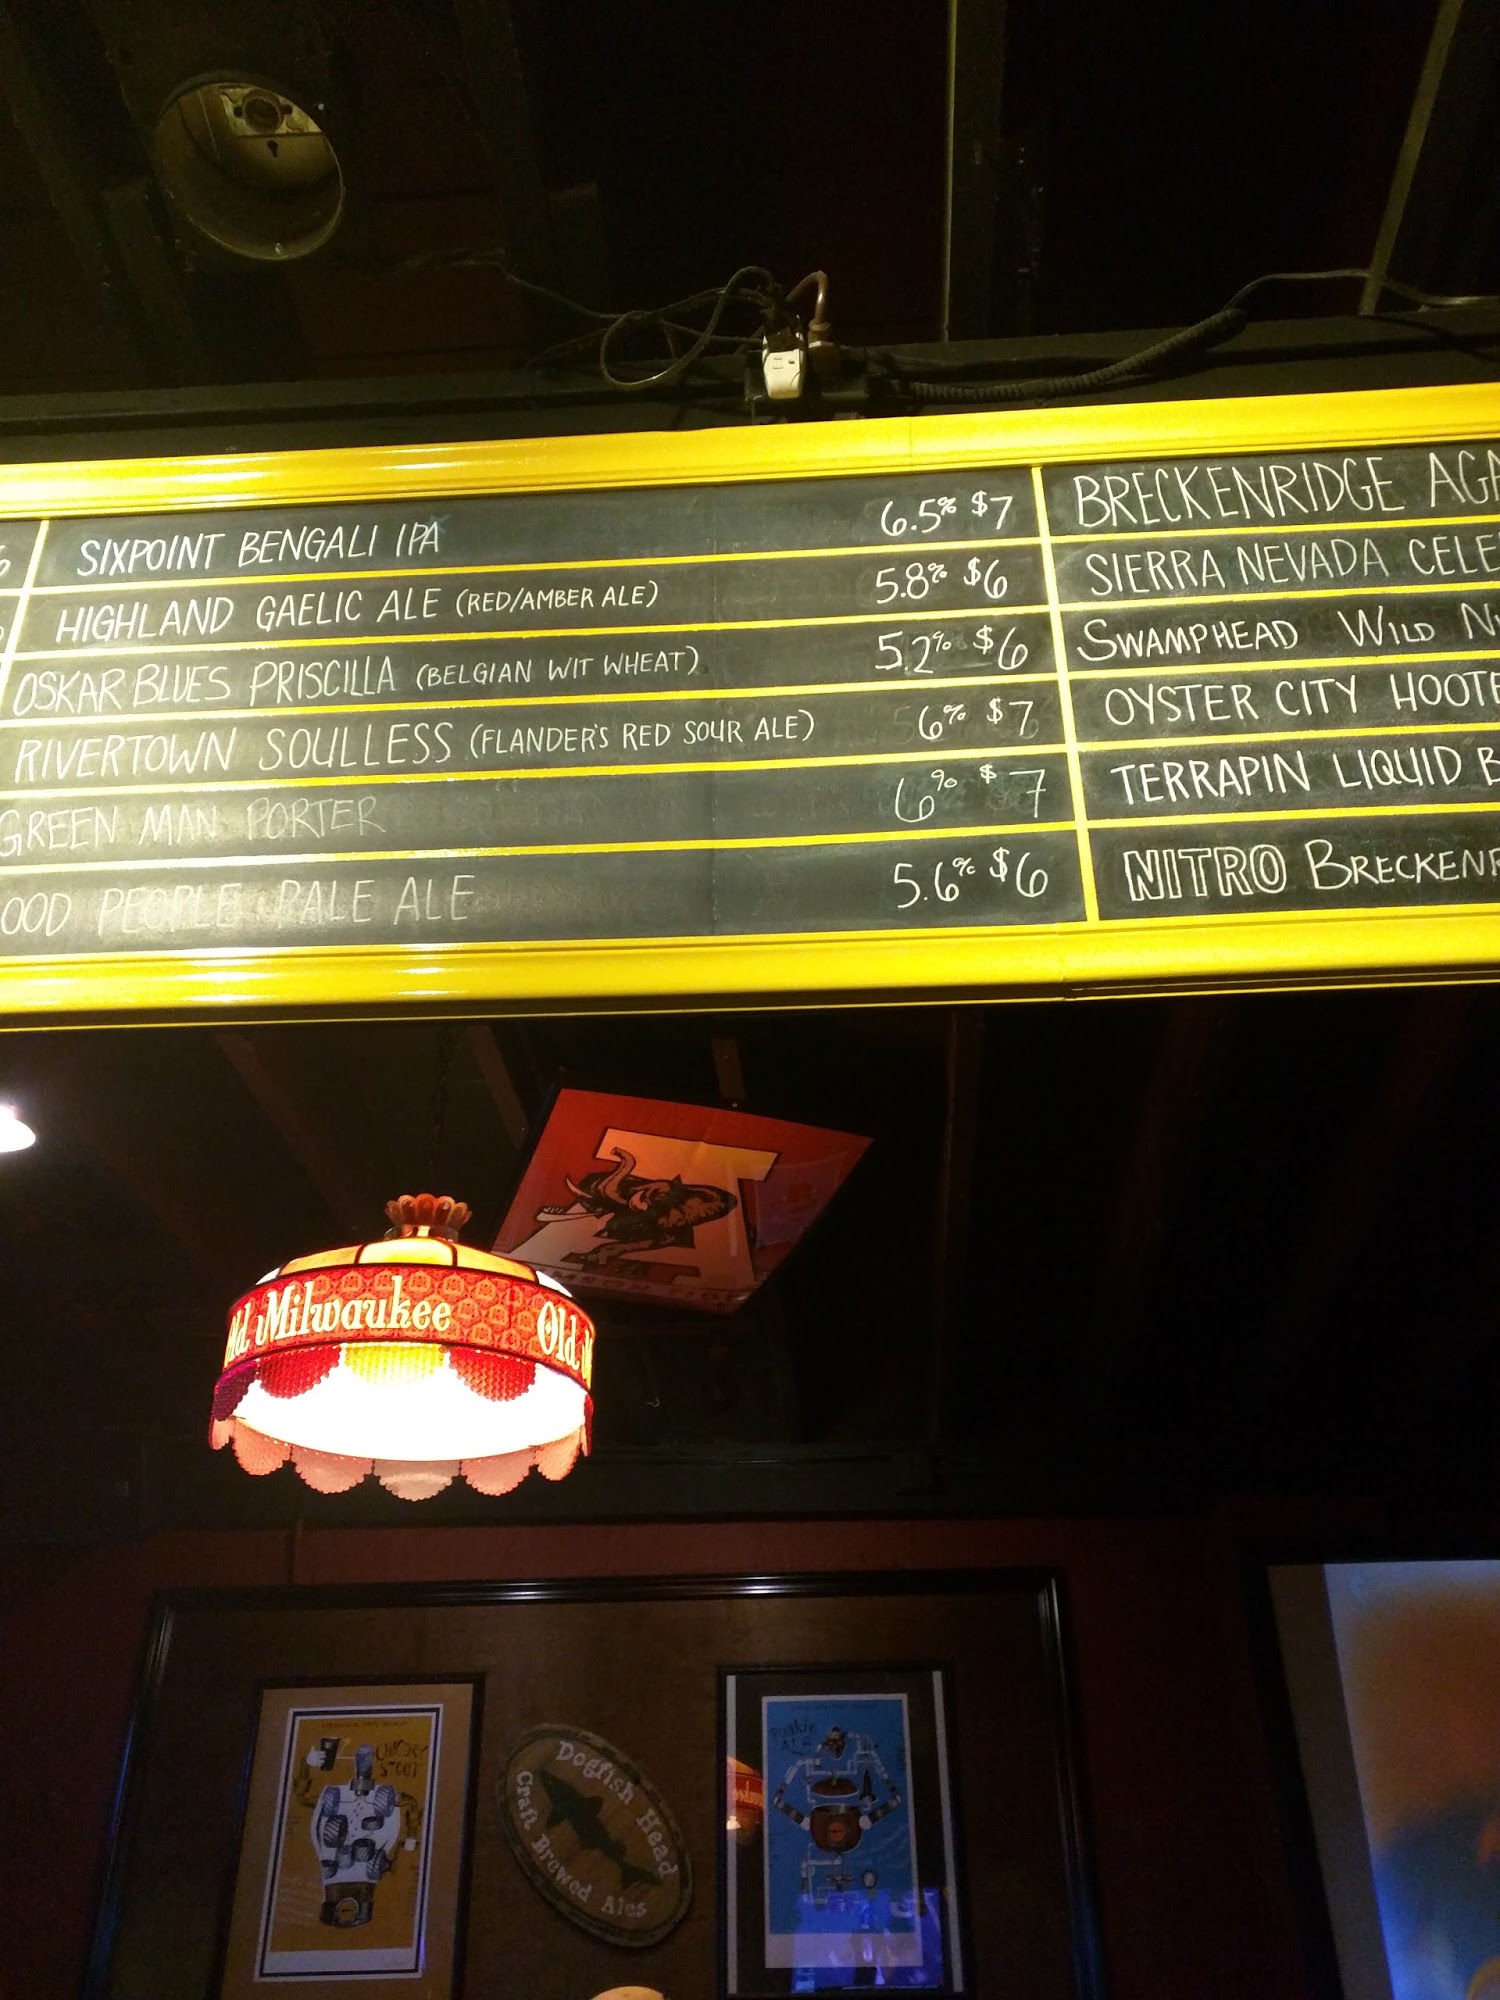 SIXPOINT BENGALI IPA 6.5% $7
HIGHLAND GAELIC ALE (RED/AMBER ALE) 5.8% $6
OSKAR BLUES PRISCILLA (BELGIAN WIT WHEAT) 5.2% $6
RIVERTOWN SOULLESS (FLANDER'S RED SOUR ALE) 6% $7
GREEN MAN PORTER 6% $7
OOD PEOPLE PALE ALE 5.6% $6
BRECKENRIDGE AGA
SIERRA NEVADA CELE
SWAMPHEAD WILD N
OYSTER CITY HOOTE
TERRAPIN LIQUID B
NITRO BRECKENR
Old Milwaukee Old M
CHICORY STOUT
Dogfish Head
Craft Brewed Ales